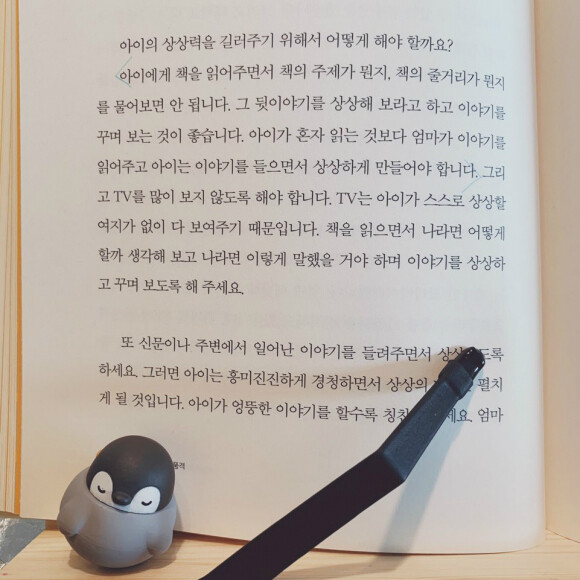 아이의 상상력을 길러주기 위해서 어떻게 해야 할까요?
아이에게 책을 읽어주면서 책의 주제가 뭔지, 책의 줄거리가 뭔지
를 물어보면 안 됩니다. 그 뒷이야기를 상상해 보라고 하고 이야기를
꾸며 보는 것이 좋습니다. 아이가 혼자 읽는 것보다 엄마가 이야기를
읽어주고 아이는 이야기를 들으면서 상상하게 만들어야 합니다. 그리
고 TV를 많이 보지 않도록 해야 합니다. TV는 아이가 스스로 상상할
여지가 없이 다 보여주기 때문입니다. 책을 읽으면서 나라면 어떻게
할까 생각해 보고 나라면 이렇게 말했을 거야 하며 이야기를 상상하
고 꾸며 보도록 해 주세요.
또 신문이나 주변에서 일어난 이야기를 들려주면서
하세요. 그러면 아이는 흥미진진하게 경청하면서 상상의 펼치
게 될 것입니다. 아이가 엉뚱한 이야기를 할수록 엄마
품격